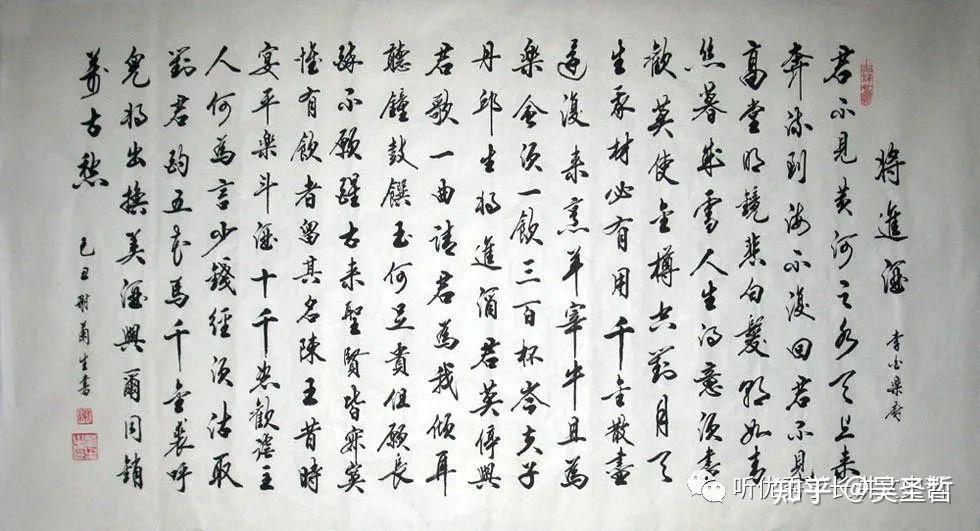 將進酒
李白樂府
君不見黃河之水天上来
奔流到海不復回君不見
高堂明鏡悲白髮朝如青
丝暮成雪人生得意須盡
歡莫使金樽空對月天
生我材必有用千金散盡
還復来烹羊宰牛且為
樂會須一飲三百杯岑夫子
丹邱生將進酒君莫停與
君歌一曲請君為我傾耳
聽鐘鼓饌玉何足貴但願長
醉不願醒古来聖賢皆寂寞
惟有飲者留其名陳王昔時
宴平樂斗酒十千恣歡謔主
人何為言少錢徑須沽取
對君酌五花馬千金裘呼
兒將出換美酒與爾同銷
萬古愁
己丑 生書
知乎 @吴圣哲